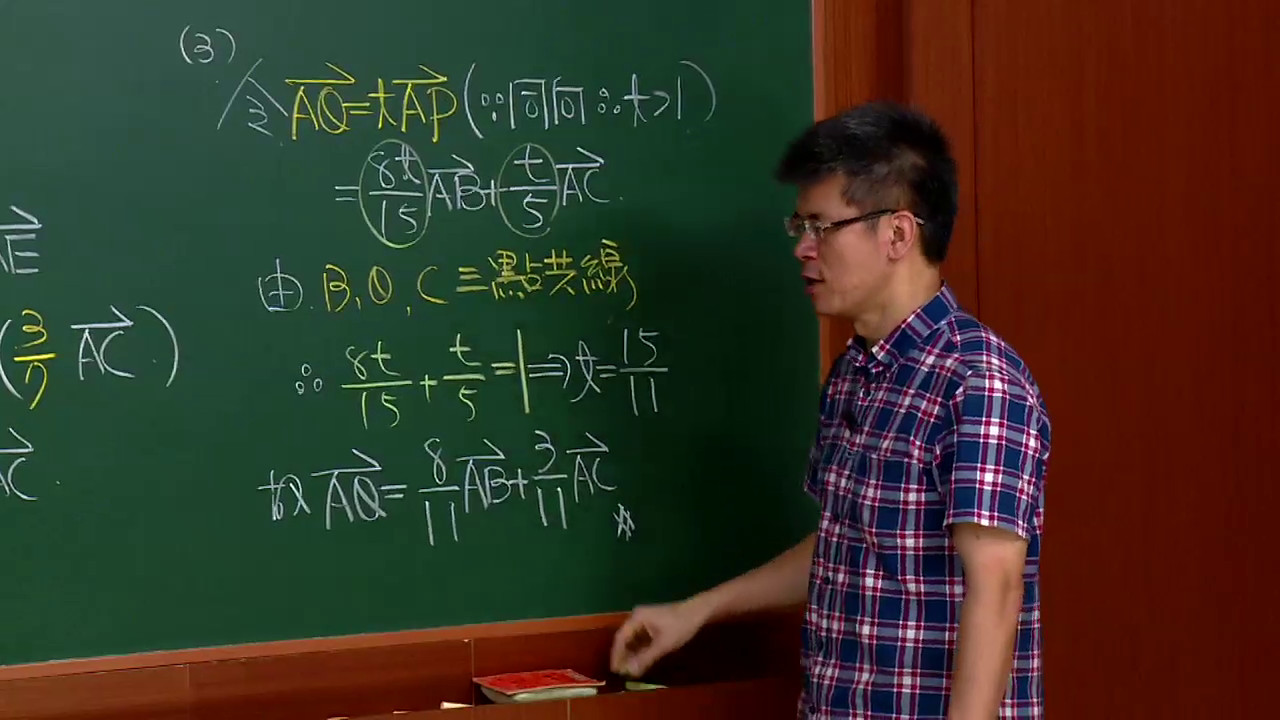 (3)
令 $\overrightarrow{AQ}=t\overrightarrow{AP}$ (∵同向 ∴t>1)
$=\frac{8t}{15}\overrightarrow{AB}+\frac{t}{5}\overrightarrow{AC}$.
由 B,Q,C三點共線,
∴ $\frac{8t}{15}+\frac{t}{5}=1 \Rightarrow t=\frac{15}{11}$
故 $\overrightarrow{AQ}=\frac{8}{11}\overrightarrow{AB}+\frac{3}{11}\overrightarrow{AC}$
$\overrightarrow{AE}$
($\frac{3}{7}\overrightarrow{AC}$)
$\overrightarrow{AC}$.